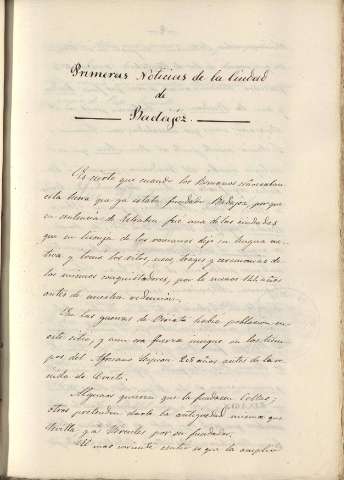 Primeras Noticias de la Ciudad
de
Badajoz.
Es cierto que cuando los Romanos
esta tierra que ya estaba fundada Badajoz, porque
en sentencia de Estrabon fue una de las ciudades
que en tiempo de los romanos dejó su lengua na-
tiva y tomó los ritos, usos, trages y ceremonias de
los mismos conquistadores, por lo menos años
antes de nuestra redencion.
En las guerras de Viriato habia poblacion en
este sitio, y aun era fuerza aunque en los tiem-
pos del Africano Scipion años antes de la ve-
nida de Cristo.
Algunos quieren que la fundaron Celtas;
otros pretenden darle la antigüedad misma que
Sevilla y á Hércules por su fundador.
El mas corriente sentir es que la amplió